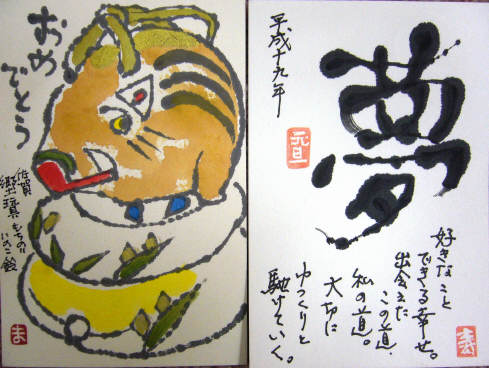 おめ
でとう
佐賀
もちのり
いのこ鈴
ま
夢
平成十九年
元旦
好きなこと
できる幸せ。
出会えた この道、
私の道。
大切に
ゆっくりと
駆けていく。